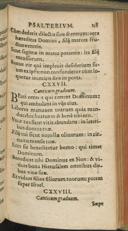 PSALTERIVM. 118
Cùm dederit dilectis suis somnum: ecce
hæreditas Domini, filij merces fructus
ventris.
Sicut sagittæ in manu potentis: ita filij
excussorum.
Beatus vir qui implevit desiderium suum
ex ipsis: non confundetur cùm loquetur
inimicis suis in porta.
CXXVII.
Canticum graduum.
Beati omnes qui timent Dominum:
qui ambulant in vijs eius.
Labores manuum tuarum quia manducabis:
beatus es & benè tibi erit.
Vxor tua sicut vitis abundans: in lateribus
domus tuæ.
Filij tui sicut novellæ olivarum: in circuitu
mensæ tuæ.
Ecce sic benedicetur homo: qui timet
Dominum.
Benedicat tibi Dominus ex Sion: & videas
bona Hierusalem omnibus diebus
vitæ tuæ.
Et videas filios filiorum tuorum: pacem
super Israel.
CXXVIII.
Canticum graduum.
Sæpe